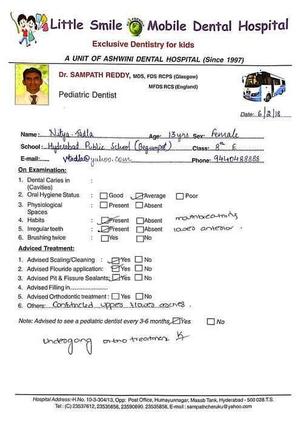 Little Smile Mobile Dental Hospital
Exclusive Dentistry for kids
A UNIT OF ASHWINI DENTAL HOSPITAL (Since 1997)
Dr. SAMPATH REDDY, MDS, FDS RCPS (Glasgow)
MFDS RCS (England)
Pediatric Dentist
Date: 6/2/18
Name: Nitya Age: 13yrs Sex: Female
School: Hyderabad Public School (Begumpet) Class: 8th E
E-mail: @yahoo.com Phone: 9440488888
On Examination:
1. Dental Caries in :
(Cavities)
2. Oral Hygiene Status : Good Average Poor
3. Physiological : Present Absent
Spaces
4. Habits : Present Absent mouthbreathing
5. Irregular teeth : Present Absent lower anterior
6. Brushing twice : Yes No
Adviced Treatment:
1. Advised Scaling/Cleaning : Yes No
2. Advised Flouride application: Yes No
3. Advised Pit & Fissure Sealants: Yes No
4. Advised Filling in
5. Advised Orthodontic treatment : Yes No
6. Others: Constricted upper & lower arches.
Note: Advised to see a pediatric dentist every 3-6 months Yes No
Undergoing ortho treatment
Hospital Address:-H.No. 10-3-304/13, Opp: Post Office, Humayunnagar, Masab Tank, Hyderabad - 500 028 T.S.
Tel: (C) 23537612, 23535656, 23590690, 23535858, E-mail : sampathcheruku@yahoo.com